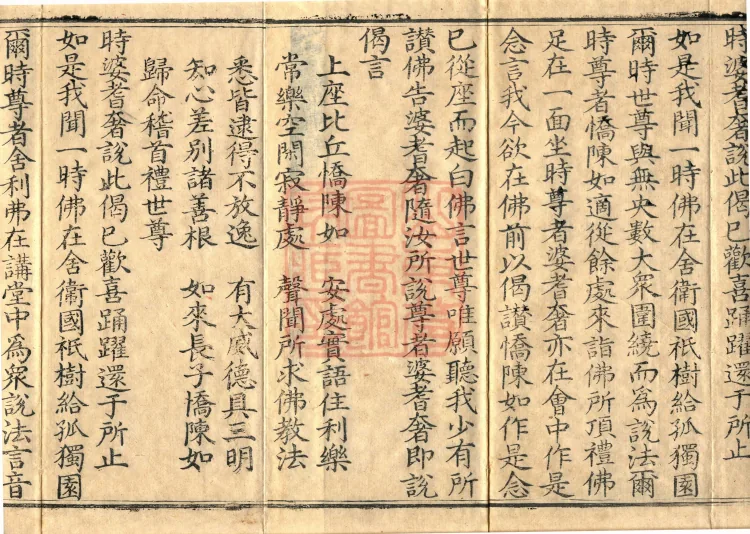 時婆耆奢說此偈已歡喜踊躍還于所止
如是我聞一時佛在舍衛國祇樹給孤獨園
爾時世尊與無央數大衆圍繞而爲說法爾
時尊者憍陳如適從餘處來詣佛所頂禮佛
足在一面坐時尊者婆耆奢亦在會中作是
念言我今欲在佛前以偈讃憍陳如作是念
已從座而起白佛言世尊唯願聽我少有所
讃佛告婆耆奢隨汝所說尊者婆耆奢即說
偈言
上座比丘憍陳如　安處實語住利樂
常樂空閑寂靜處　聲聞所求佛教法
悉皆逮得不放逸　有大威德具三明
知心差別諸善根　如來長子憍陳如
歸命稽首禮世尊
時婆耆奢說此偈已歡喜踊躍還于所止
如是我聞一時佛在舍衛國祇樹給孤獨園
爾時尊者舍利佛在講堂中爲眾說法言音